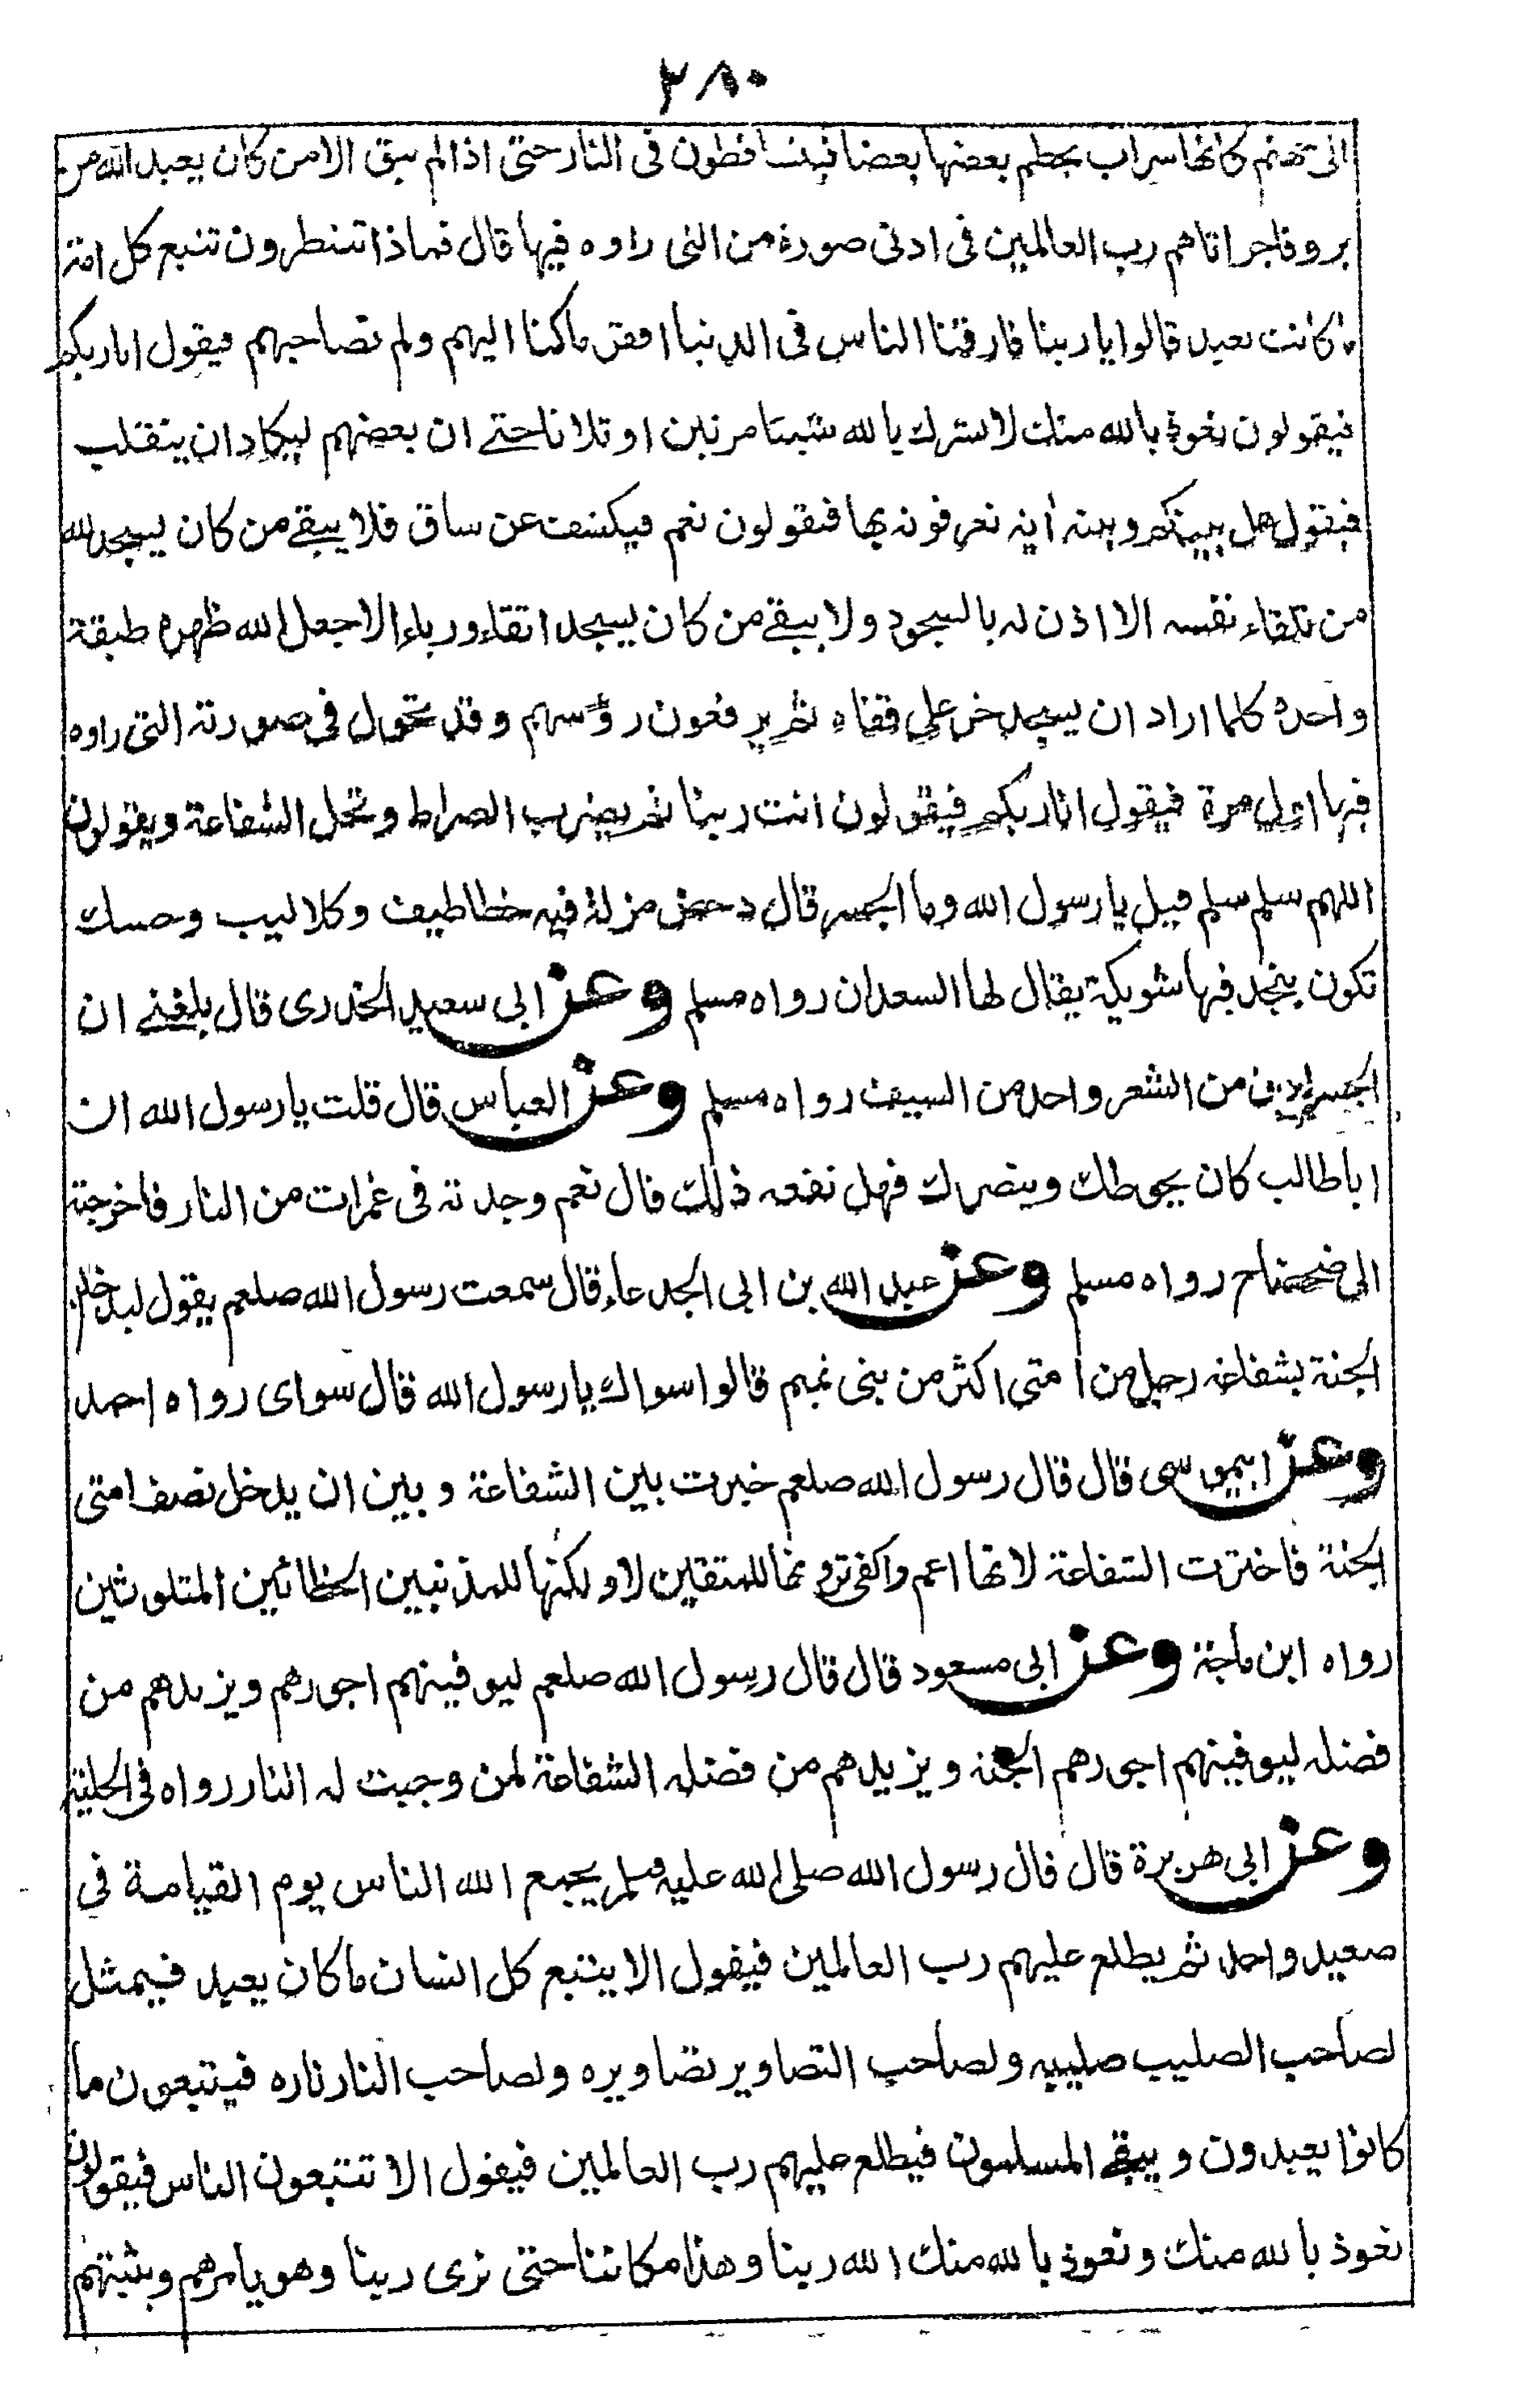 ٣٨٠
الى جهنم كانها سراب يحطم بعضها بعضا فيتساقطون فى النار حتى اذا لم يبق الا من كان يعبد الله من
بر وفاجر اتاهم رب العالمين فى ادنى صورة من التى راوه فيها قال فماذا تنتظرون تتبع كل امة
ما كانت تعبد قالوا يا ربنا فارقنا الناس فى الدنيا افقر ما كنا اليهم ولم نصاحبهم فيقول انا ربكم
فيقولون نعوذ بالله منك لا نشرك بالله شيئا مرتين او ثلاثا حتى ان بعضهم ليكاد ان ينقلب
فيقول هل بينكم وبينه اية تعرفونه بها فيقولون نعم فيكشف عن ساق فلا يبقى من كان يسجد لله
من تلقاء نفسه الا اذن له بالسجود ولا يبقى من كان يسجد اتقاء ورياء الا جعل الله ظهره طبقة
واحدة كلما اراد ان يسجد خر على قفاه ثم يرفعون رؤسهم وقد تحول فى صورته التى راوه
فيها اول مرة فيقول انا ربكم فيقولون انت ربنا ثم يضرب الصراط وتحل الشفاعة ويقولون
اللهم سلم سلم قيل يا رسول الله وما الجسر قال دحض مزلة فيه خطاطيف وكلاليب وحسك
تكون بنجد فيها شويكة يقال لها السعدان رواه مسلم وعن ابى سعيد الخدرى قال بلغنى ان
الجسر ادق من الشعر واحد من السيف رواه مسلم وعن العباس قال قلت يا رسول الله ان
ابا طالب كان يحوطك وينصرك فهل نفعه ذلك قال نعم وجدته فى غمرات من النار فاخرجته
الى ضحضاح رواه مسلم وعن عبد الله بن ابى الجدعاء قال سمعت رسول الله صلعم يقول ليدخلن
الجنة بشفاعة رجل من امتى اكثر من بنى تميم قالوا سواك يا رسول الله قال سواى رواه احمد
وعن ابيموسى قال قال رسول الله صلعم خيرت بين الشفاعة وبين ان يدخل نصف امتى
الجنة فاخترت الشفاعة لانها اعم واكفى ترونها للمتقين لا ولكنها للمذنبين الخطائين المتلوثين
رواه ابن ماجة وعن ابى مسعود قال قال رسول الله صلعم ليوفينهم اجورهم ويزيدهم من
فضله ليوفينهم اجورهم الجنة ويزيدهم من فضله الشفاعة لمن وجبت له النار رواه فى الحلية
وعن ابى هريرة قال قال رسول الله صلى الله عليه وسلم يجمع الله الناس يوم القيامة فى
صعيد واحد ثم يطلع عليهم رب العالمين فيقول الا يتبع كل انسان ما كان يعبد فيمثل
لصاحب الصليب صليبه ولصاحب التصاوير تصاويره ولصاحب النار ناره فيتبعون ما
كانوا يعبدون ويبقى المسلمون فيطلع عليهم رب العالمين فيقول الا تتبعون الناس فيقولون
نعوذ بالله منك ونعوذ بالله منك الله ربنا وهذا مكاننا حتى نرى ربنا وهو يامرهم ويثبتهم